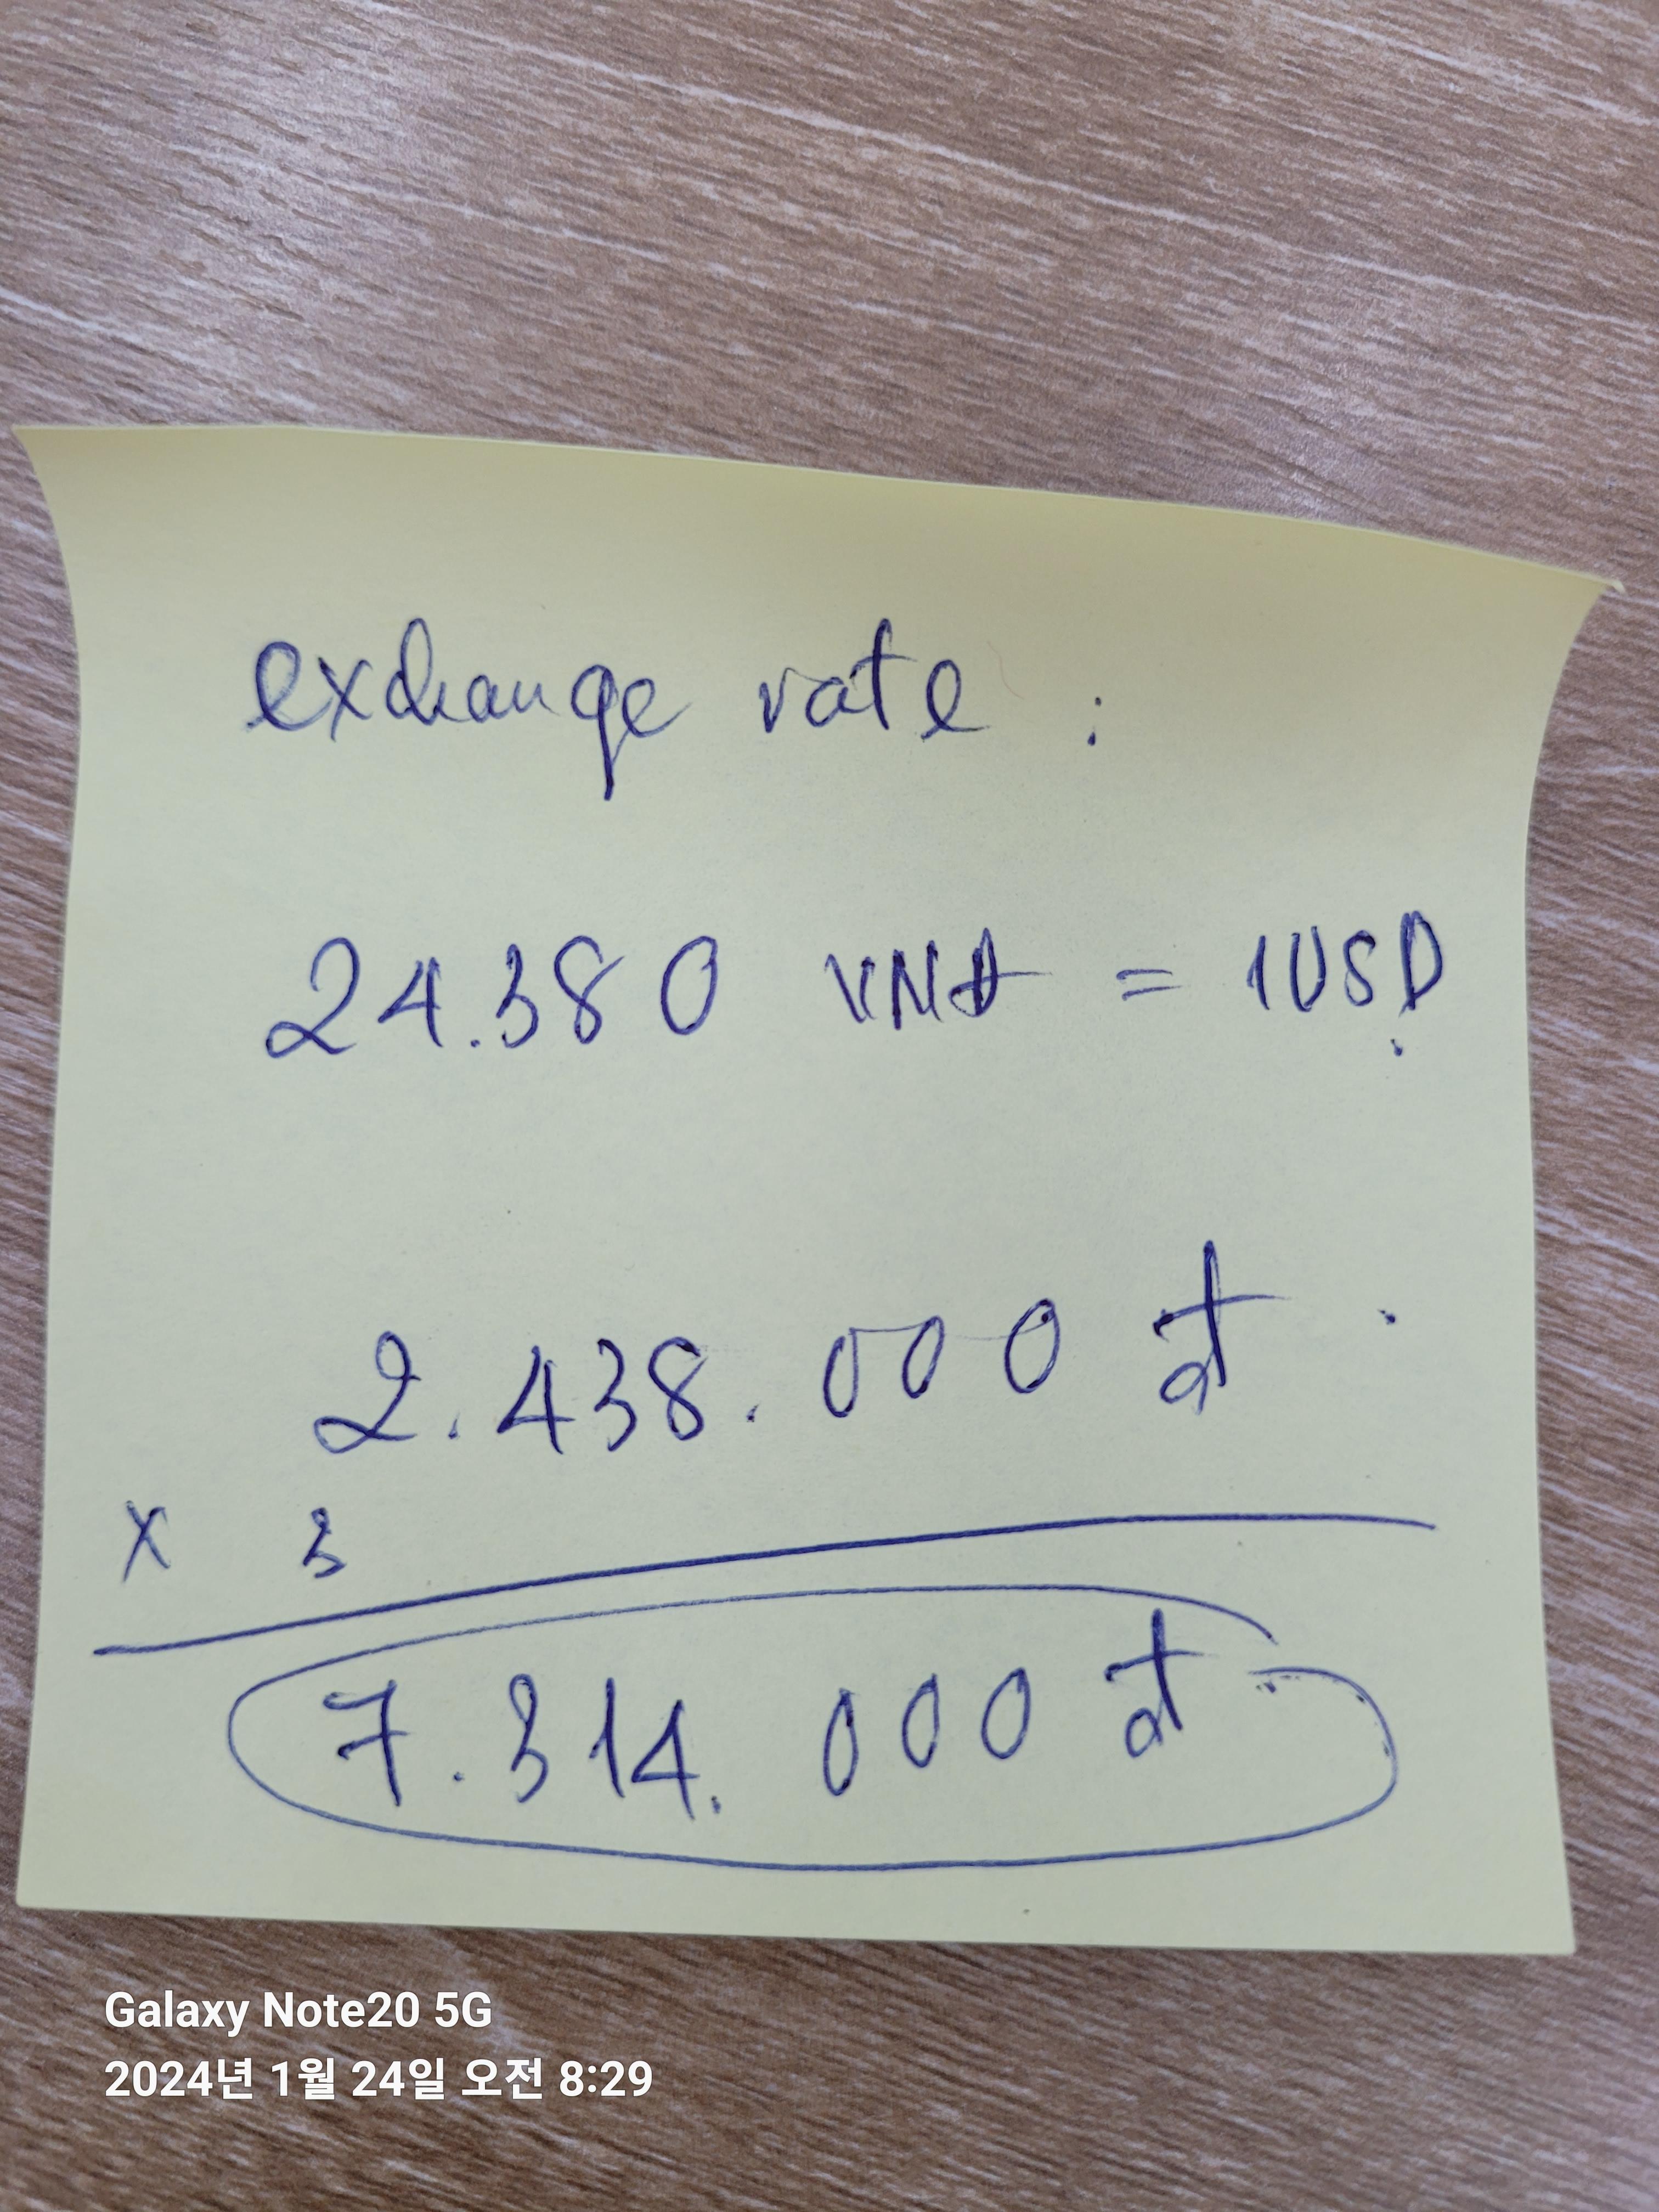 exchange rate :
24.380 VNĐ = 1USD
2.438.000 đ
x 3
7.314.000 đ
Galaxy Note20 5G
2024년 1월 24일 오전 8:29